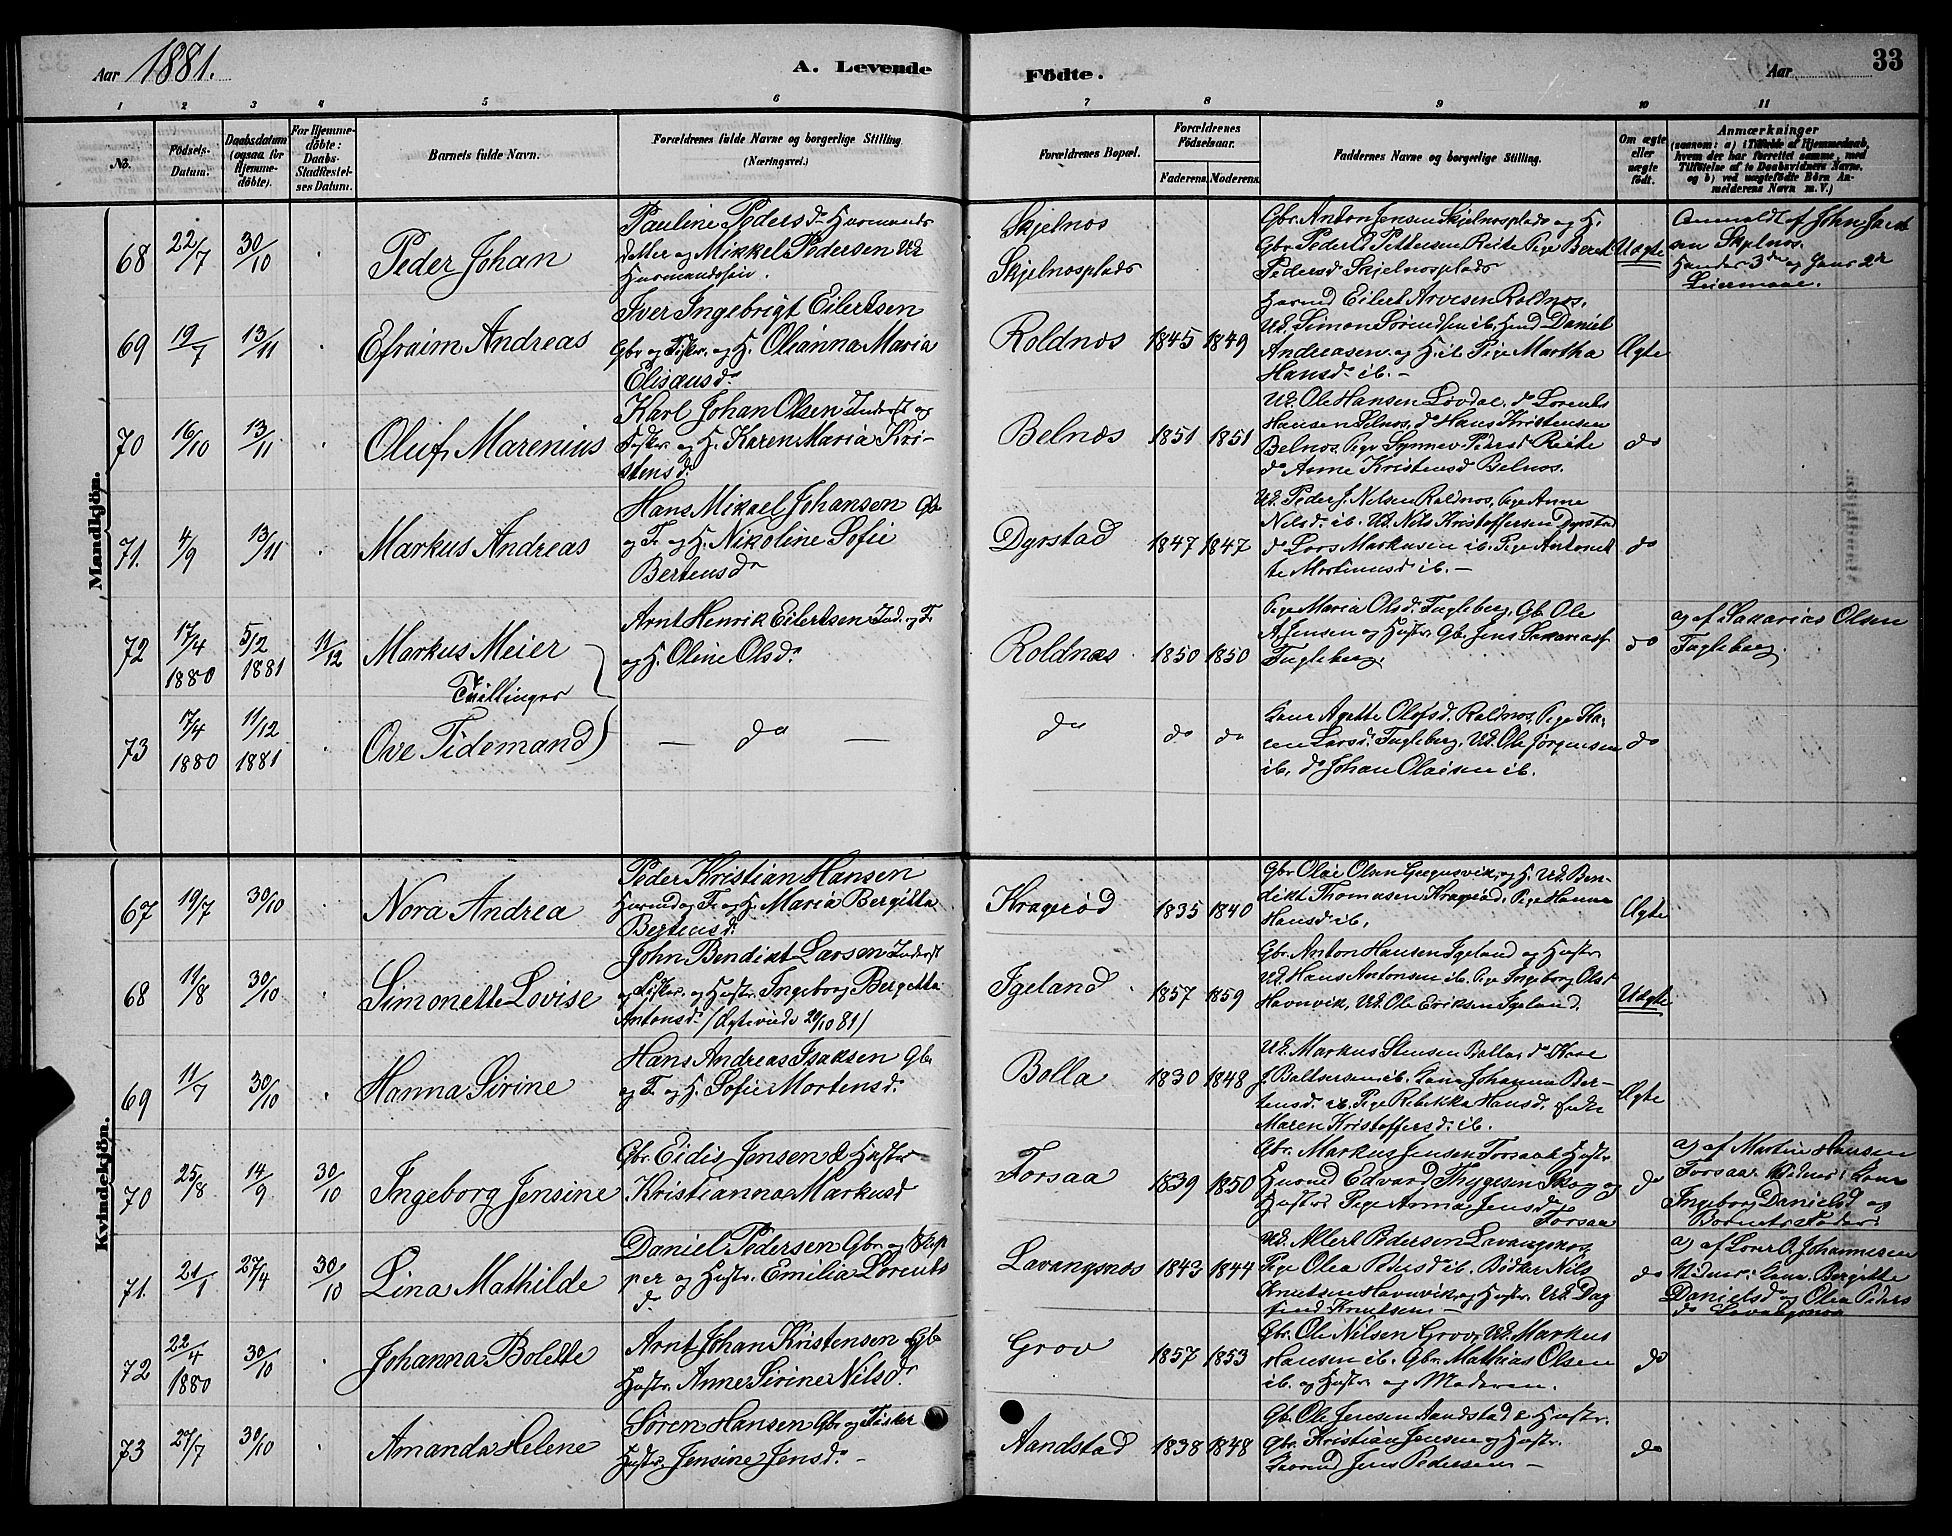 Aar 1881.
A. Levende
Födte.
Aar
33
1 2 3 4 5 6 7 8 9 10 11
No.
Födsels-
Datum.
Daabsdatum
(ogsaa for
Hjemme-
döbte).
For Hjemme-
döbte:
Daabs-
Stadfæstel-
ses Datum.
Barnets fulde Navn.
Forældrenes fulde Navne og borgerlige Stilling
(Næringsvei.)
Forældrenes Bopæl.
Forældrenes
Födselsaar.
Faderens. Moderens.
Faddernes Navne og borgerlige Stilling.
Om ægte
eller
uægte
födt.
Anmærkninger
(saasom: a) i Tilfælde af Hjemmedaab,
hvem der har forrettet samme, med
Tilföielse af to Daabsvidners Navne,
og b) ved uægtefödte Börn An-
melderens Navn m. V.)
Mandkjön.
68 22/7 30/10
Peder Johan
Pauline Pedersdr Huusmands
datter og Mikkel Pedersen Ud
Huusmandssøn.
Skjelnos
Skjelnosplads
Gbr. Anton Jensen Skjelnosplads og H.
Gbr. Peder L Pettersen Reite Pige Beret
Pedersd Skjelnosplads
Uægte
Anmeldt af John
Skjelnos.
Hendes 3die og Hans 2det
Leiermaal.
69 19/7 13/11
Efraim Andreas
Iver Ingebrigt Eilertsen
Gbr og Fisker. og H. Olianna Maria
Elisæusdr
Roldnos 1845 1849
Huusmd Eilert Arvesen Roldnos,
Ud. Simon Sørensen ib. Daniel
Andreasen og H. ib. Pige Martha
Hansdr ib. -
Ægte
70 16/10 13/11 .
Oluf Marenius
Karl Johan Olsen Inderst og
Fisker og H. Karen Maria Kri-
stensdr
Belnos 1851 1851
Ud. Ole Hansen Løvdal, do Lorents
Hansen Selnos, do Hans Kristensen
Belnos, Pige Synnev Pedersd Reite
do Anne Kristensd Belnos.
do
71. 4/9 13/11 .
Markus Andreas
Hans Mikael Johansen Gb
og F. og H. Nikoline Sofie
Bertensdr
Dyrstad 1847 1847
Ud. Peder J. Nilsen Roldnos, Pige Anne
Nilsdr ib. Ud. Nils Kristoffersen Dyrstad
do Lars Markusen ib. Pige Antonet
te Martinusd ib. -
do
72 17/4 1880 5/2 1881 11/12
Markus Meier
Tvillinger
Arnt Henrik Eilertsen Ind. og F.
og H. Oline Olsdr
Roldnos 1850 1850
Pige Maria Olsdr Fugleberg, Gb Ole
A Jensen og Hustr. Gb. Jens
Fugleberg.
do
a) af Sakarias Olsen
Fugleberg.
73 17/4 1880 11/12 1881 .
Ove Tidemand
— do —
do do do
Kone Agatte Olofsd. Roldnos, Pige Ka-
ren Larsd. Fugleberg, Ud. Ole Jørgensen
ib. do Johan Olaisen ib.
do
Kvindekjön.
67 19/7 30/10 .
Nora Andrea
Peder Kristian Hansen
Huusmd og F. og H. Maria Bergitta
Bertensd.
Kragerød 1835 1840
Gbr Olai Olsen og H. Ud. Ben-
dikt Thomasen Kragerød, Pige Hanna
Hansd ib.
Ægte
68 11/8 30/10 .
Simonette Lovise
John Bendikt Larsen Inderst
og Fisker. og Hustr. Ingeborg Bergitta
Antonsdr (Ægteviede 29/10 81)
Igeland 1857 1859
Gbr. Anton Hansen Igeland og Hustr
Ud. Hans Antonsen ib. Pige Ingeborg Olsd
Havnvik, Ud. Ole Eriksen Igeland.
Uægte
69 11/7 30/10 .
Hanna Sirine
Hans Andreas Isaksen Gb.
og F. og H. Sofie Mortensdr
Bolla 1830 1848
Ud. Markus Stensen Bolla, do
J. Baltsersen ib. Kone Johanna Ber-
tensd. ib. Pige Rebekka Hansd, Enke
Maren Kristoffersd. ib.
Ægte
70 25/8 14/9 30/10
Ingeborg Jensine
Gbr. Eidis Jensen & Hustr
Kristianna Markusd
Forsaa 1839 1850
Gbr. Markus Jensen Forsaa & Hustr.
Huusmd Edvard Thygesen Skog og
Hustr. Pige Anna Jensdr
Forsaa
do
a) af Martin Hansen
Forsaa. Vidner: Kone
Ingeborg Danielsd og
Barnets Fader.
71. 21/1 27/4 30/10
Lina Mathilde
Daniel Pedersen Gbr. og Skip
per og Hustr. Emilia Lorents
d.
Lavangsnos 1843 1844
Ud. Allert Pedersen Lavangsnos,
Pige Olea Pedersd ib. Nils
Knutsen Havnvik, og Hustr. Ud. Dag
find Knutsen -
do
a) af Johannesen
Vidner: Kone Bergitte
Danielsd og Olea Peders
d. Lavangsnos
72 22/4 1880 30/10 .
Johanna Bolette
Arnt Johan Kristensen Gb
Hustr. Anne Sirine Nilsdr
Grov 1857 1853
Gbr. Ole Nilsen Grov, Ud. Markus
Hansen ib. Gbr. Mathias Olsen
ib. og Hustr. og Moderen.
do
73 27/7 30/10 .
Amanda Helene
Søren Hansen Gbr og Fisker
Hustr. Jensine Jensdr -
Aandstad 1838 1848
Gb. Ole Jensen Aandstad & Hustr.
Gbr. Kristian Jensen og Hustr.
Jens Pedersen -
do